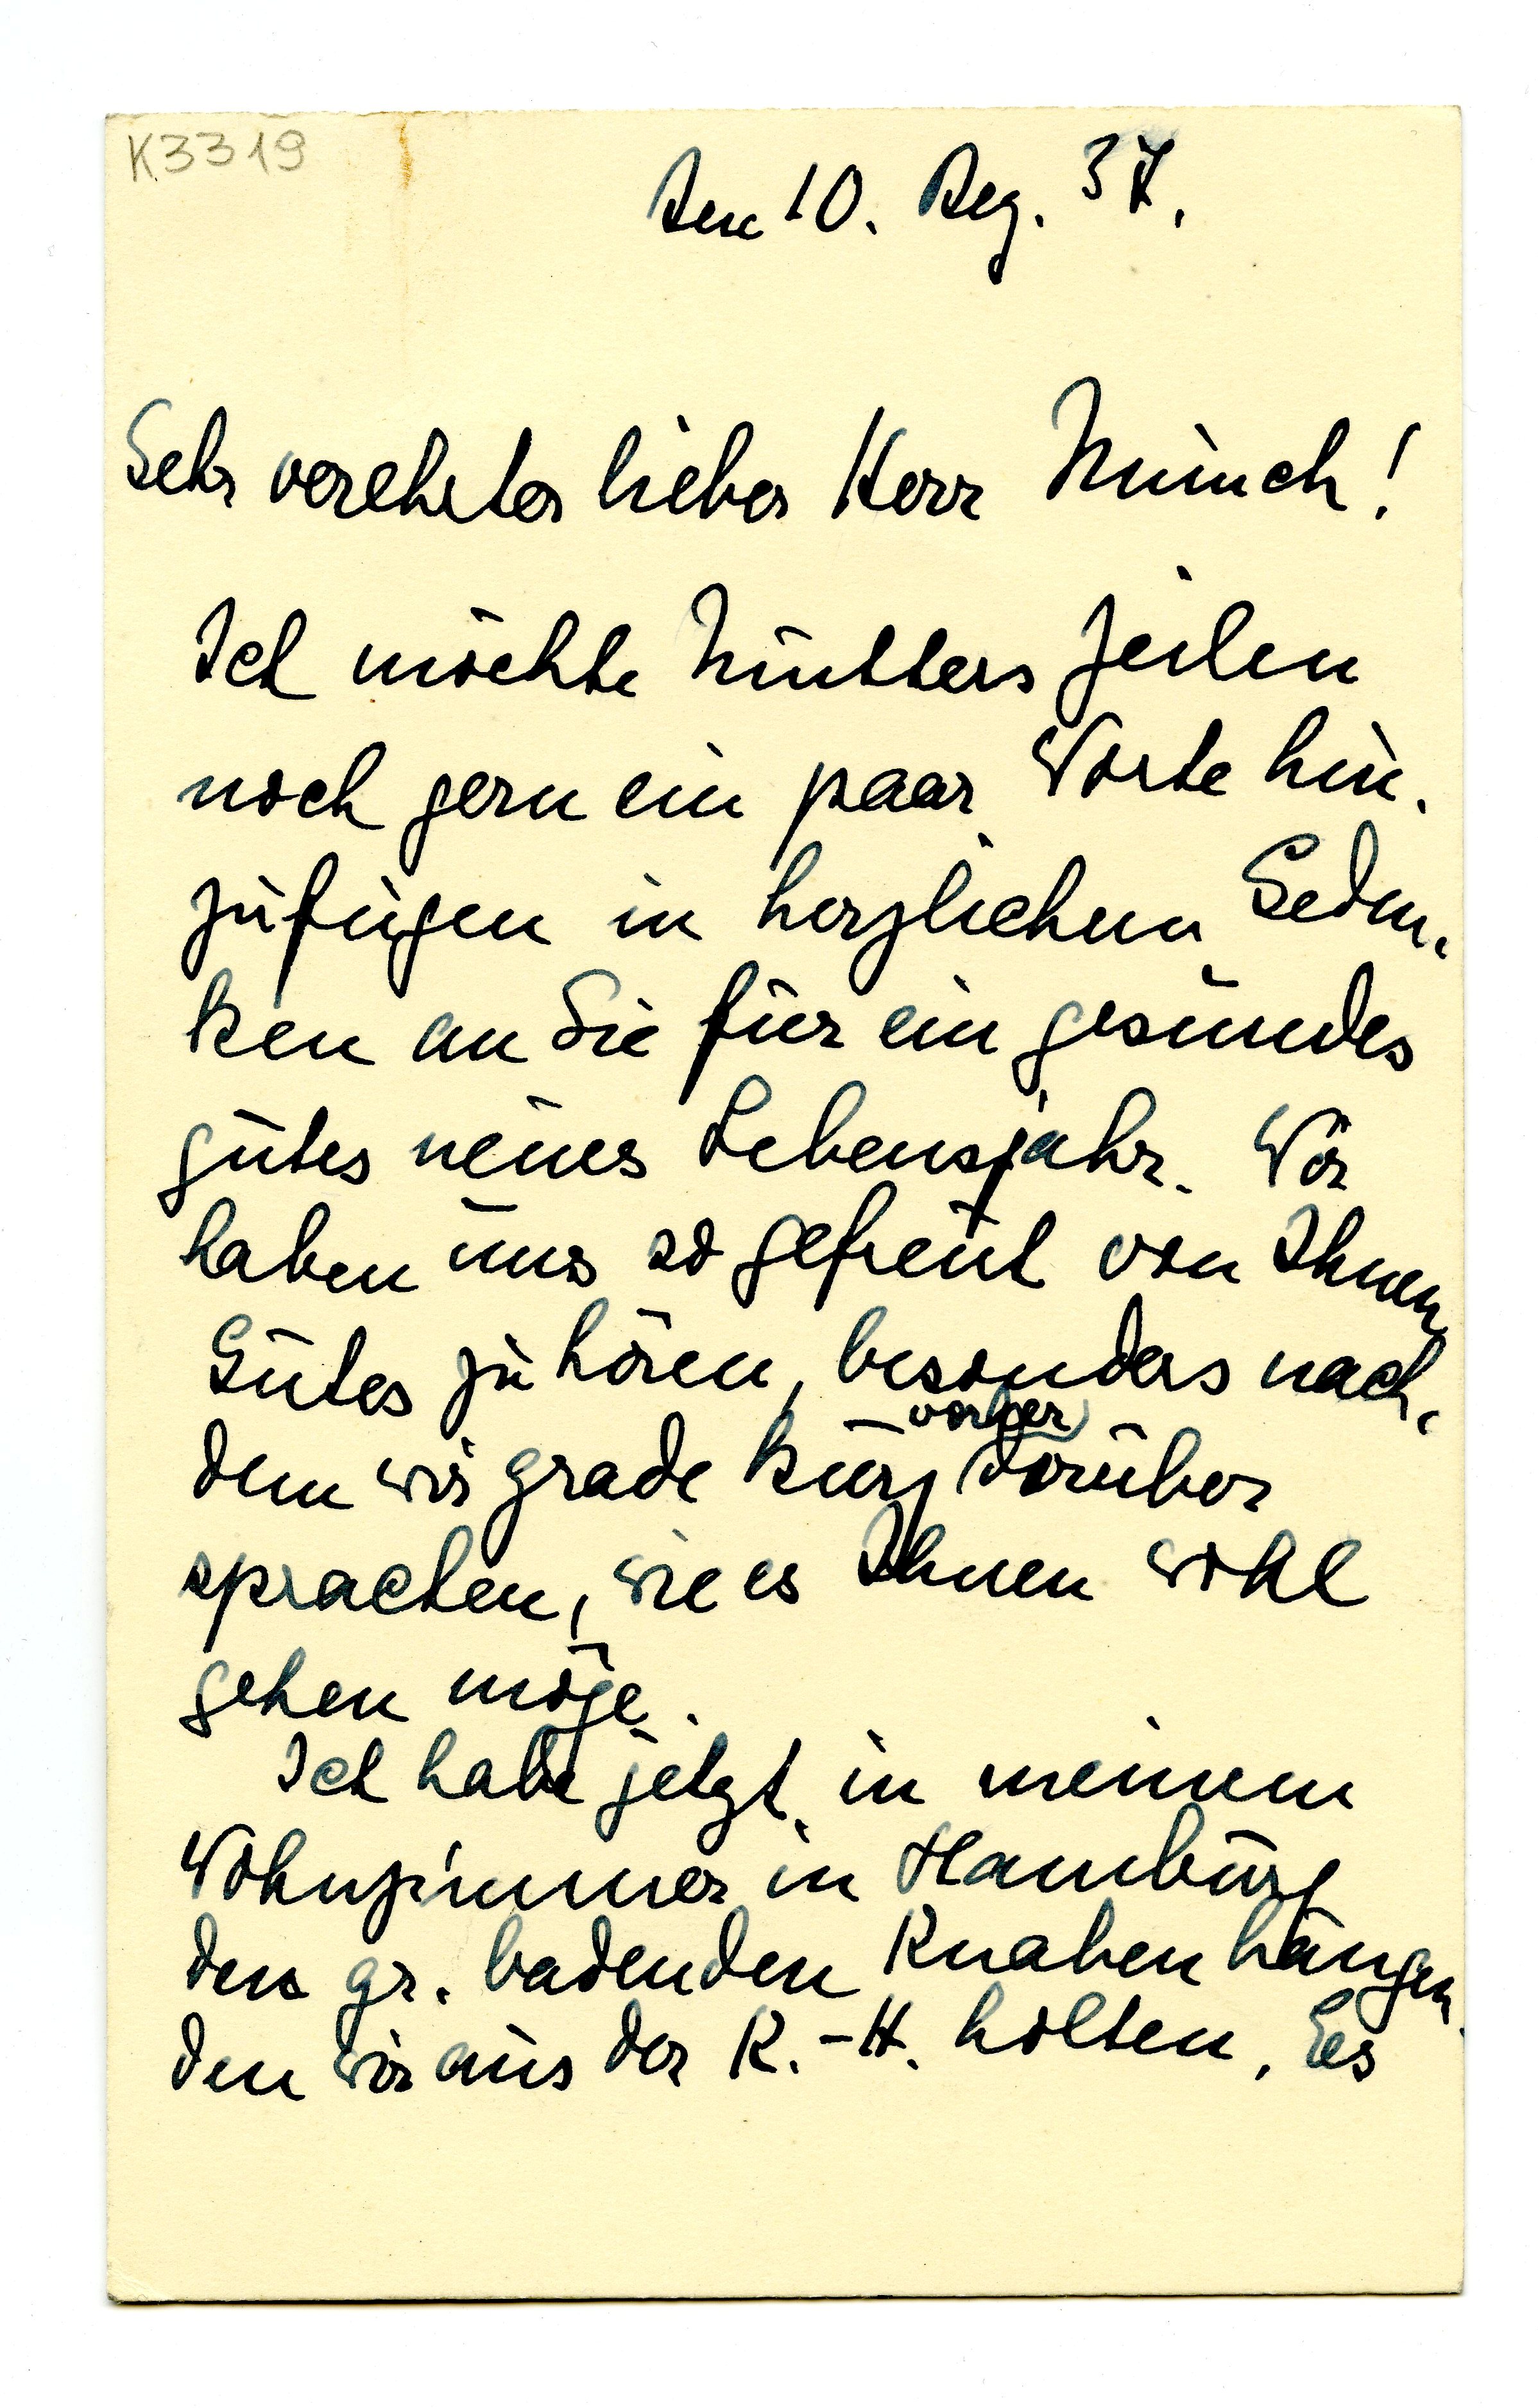 K3319
Den 10. Dez. 37.
Sehr verehrter lieber Herr Munch!
Ich möchte Mutters Zeilen
noch gern ein paar Worte hin-
zufügen in herzlichem Geden-
ken an Sie für ein gesundes
gutes neues Lebensjahr. Wir
haben uns so gefreut von Ihnen
Gutes zu hören, besonders nach-
vorher
dem wir grade kurz darüber
sprachen, wie es Ihnen wohl
gehen möge.
Ich habe jetzt in meinem
Wohnzimmer in Hamburg
den gr. badenden Knaben hängen
den wir aus der K.-H. holten. Es